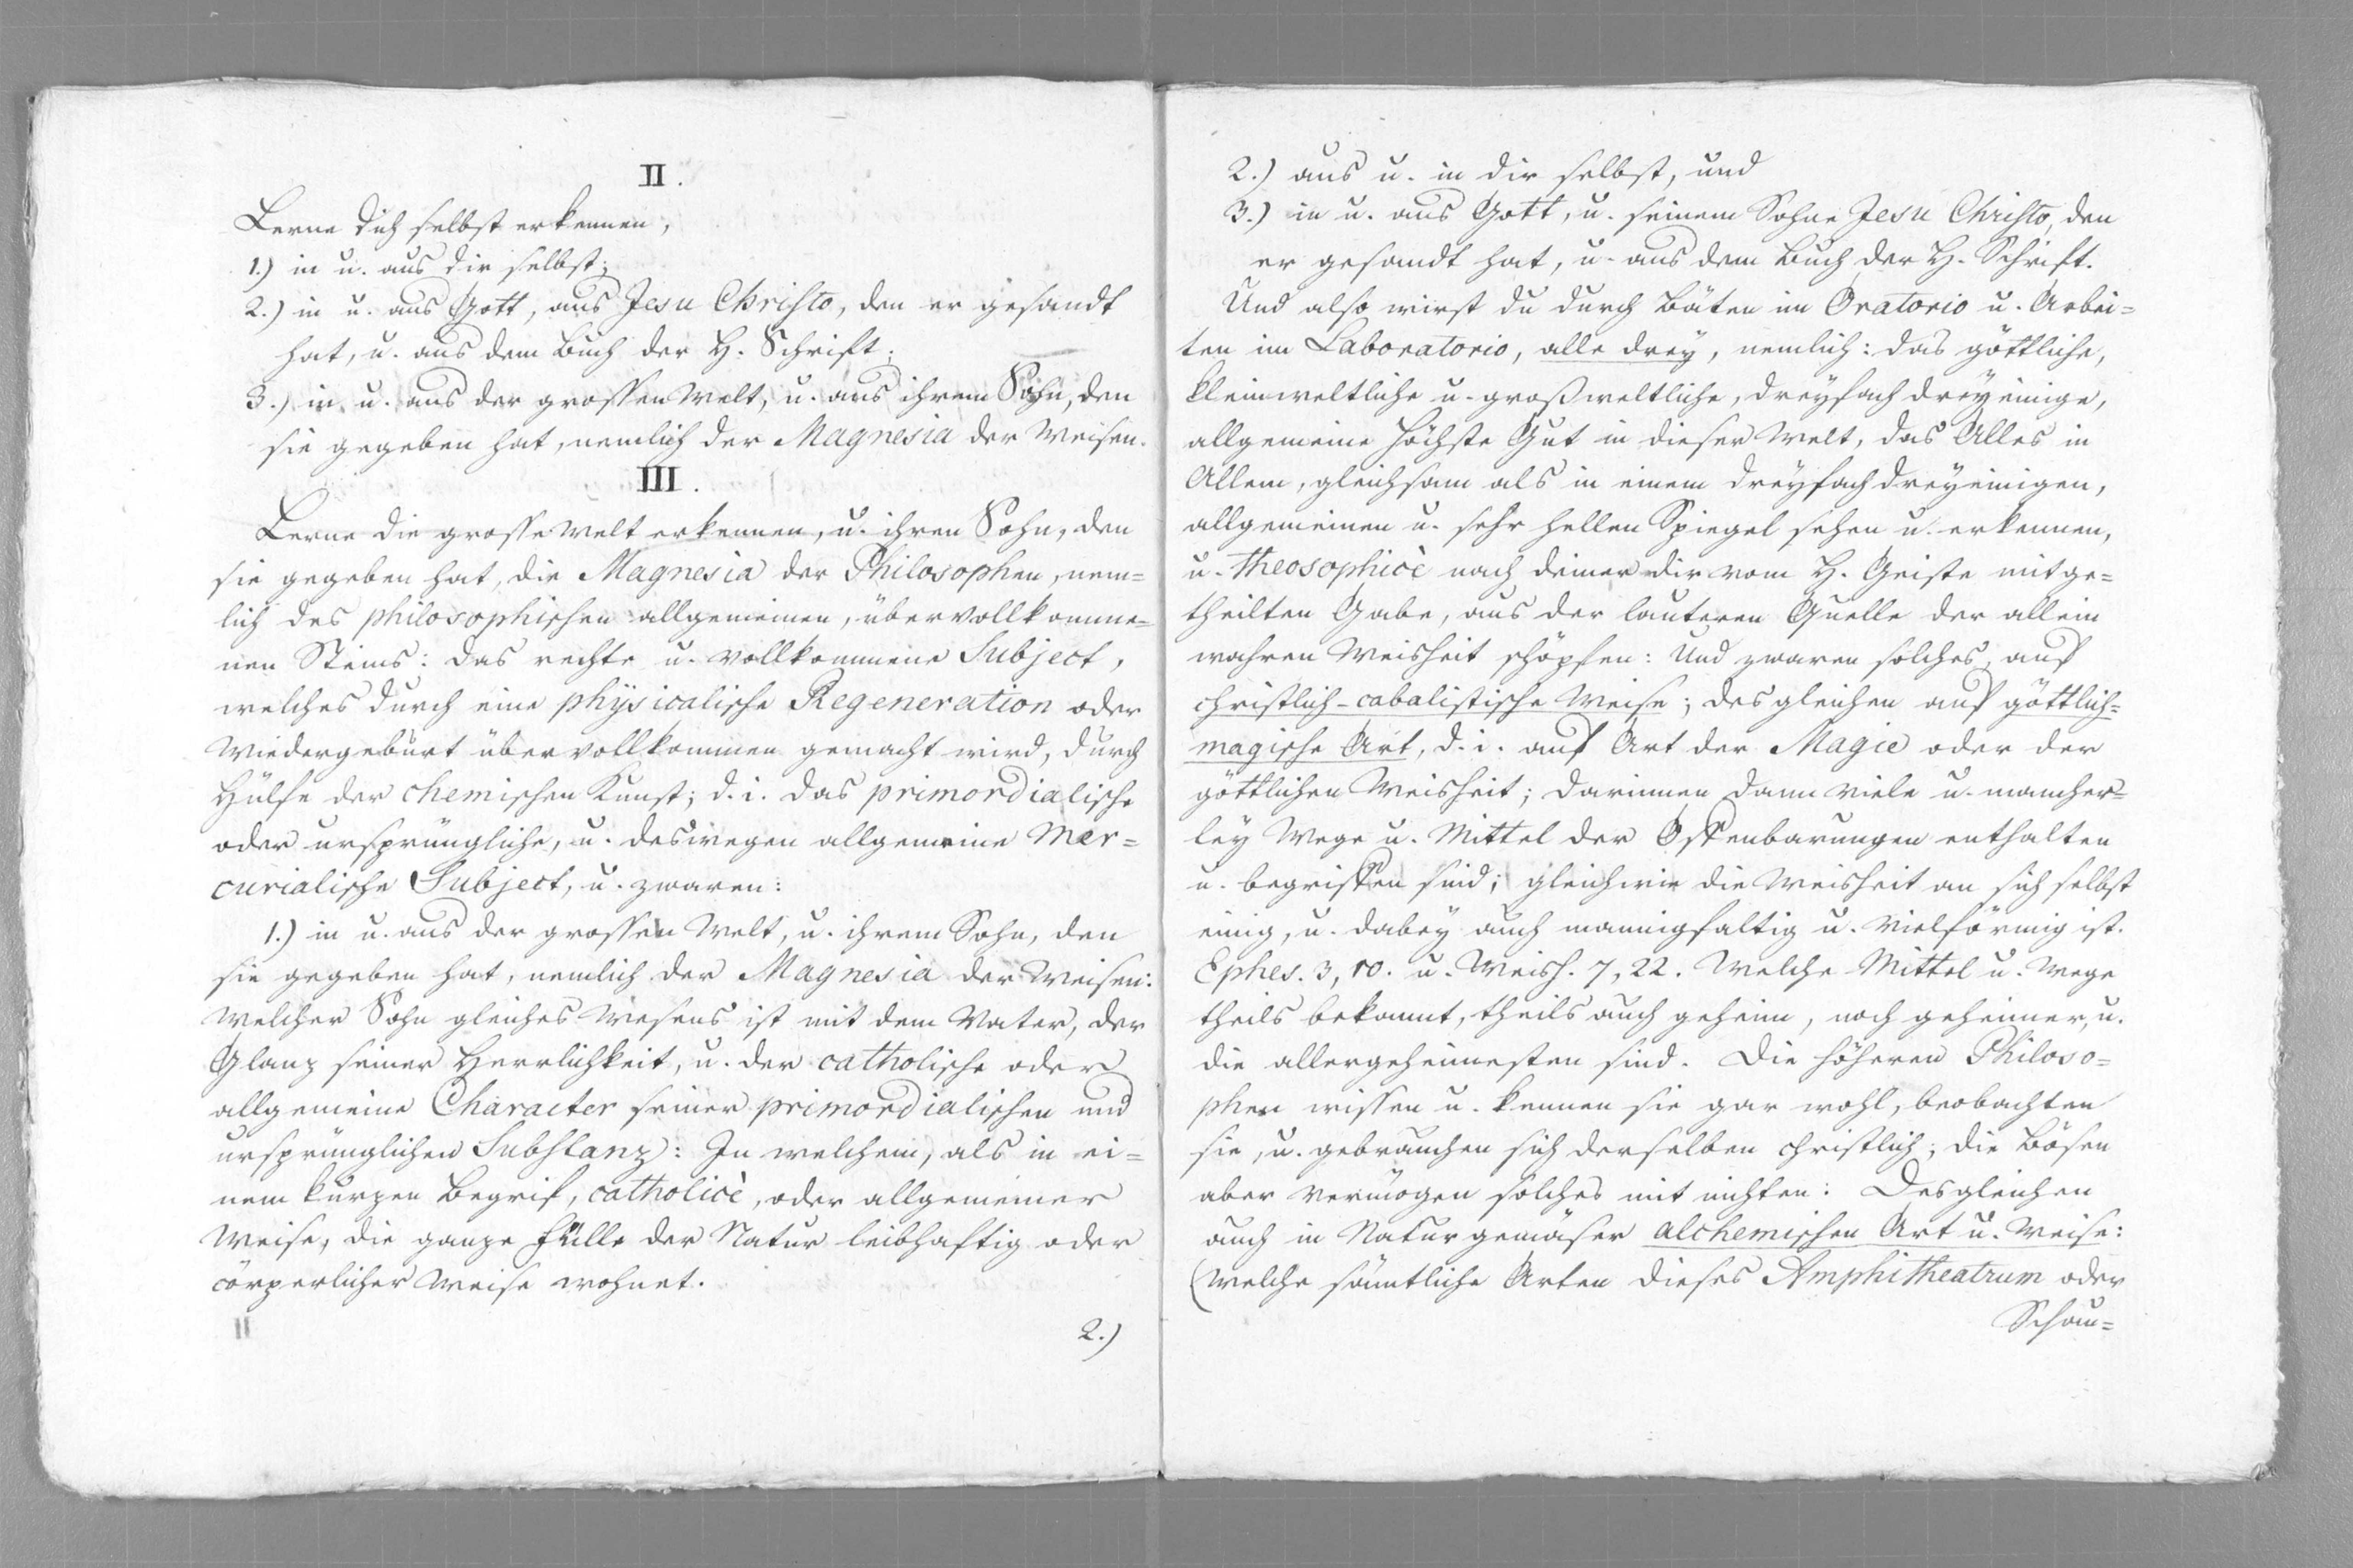 II.
Lerne dich selbst erkennen,
1.) in u. aus dir selbst;
2.) in u. aus Gott, aus Jesu Christo, den er gesandt
hat, u. aus dem Buch der H. Schrift;
3.) in u. aus der grossen Welt, u. aus ihrem Sohn, den
sie gegeben hat, nemlich der Magnesia der Weisen.
III.
Lerne die grosse Welt erkennen, u. ihren Sohn, den
sie gegeben hat, die Magnesia der Philosophen, nem=
lich des philosophischen allgemeinen, übervollkomme=
nen Steins: das rechte u. vollkommene Subject,
welches durch eine physicalische Regeneration oder
Wiedergeburt übervollkommen gemacht wird, durch
Hülfe der chemischen Kunst; d. i. das primordialische
oder ursprüngliche, u. deswegen allgemeine Mer=
curialische Subject, u. zwaren:
1.) in u. aus der grossen Welt, u. ihrem Sohn, den
sie gegeben hat, nemlich der Magnesia der Weisen:
Welcher Sohn gleiches Wesens ist mit dem Vater, der
Glanz seiner Herrlichkeit, u. der catholische oder
allgemeine Character seiner primordialischen und
ursprünglichen Substanz: In welchem, als in ei=
nem kurzen Begrif, catholicè, oder allgemeiner
Weise, die ganze Fülle der Natur leibhaftig oder
cörperlicher Weise wohnet.
2.)
2.) aus u. in dir selbst, und
3.) in u. aus Gott, u. seinem Sohne Jesu Christo, den
er gesandt hat, u. aus dem Buch der H. Schrift.
Und also wirst du durch Bäten im Oratorio u. Arbei=
ten im Laboratorio, alle drey, nemlich: das göttliche,
kleinweltliche u. großweltliche, dreyfach dreyeinige,
allgemeine höchste Gut in dieser Welt, das Alles in
Allem, gleichsam als in einem dreyfach dreyeinigen,
allgemeinen u. sehr hellen Spiegel sehen u. erkennen,
u. theosophicè nach deiner dir vom H. Geiste mitge=
theilten Gabe, aus der lauteren Quelle der allein
wahren Weisheit schöpfen: Und zwaren solches, auf
christlich-cabalistische Weise; desgleichen auf göttlich=
magische Art, d. i. auf Art der Magie oder der
göttlichen Weisheit; darinnen dann viele u. mancher=
ley Wege u. Mittel der Offenbarungen enthalten
u. begriffen sind; gleichwie die Weisheit an sich selbst
einig, u. dabey auch mannigfaltig u. vielförmig ist.
Ephes. 3, 10. u. Weish. 7, 22. Welche Mittel u. Wege
theils bekannt, theils auch geheim, noch geheimer, u.
die allergeheimesten sind. Die höheren Philoso=
phen wissen u. kennen sie gar wohl, beobachten
sie, u. gebrauchen sich derselben christlich; die Bösen
aber vermögen solches mit nichten: Desgleichen
auch in Naturgemäser alchemischen Art u. Weise:
(Welche sämtliche Arten dieses Amphitheatrum oder
Schau=